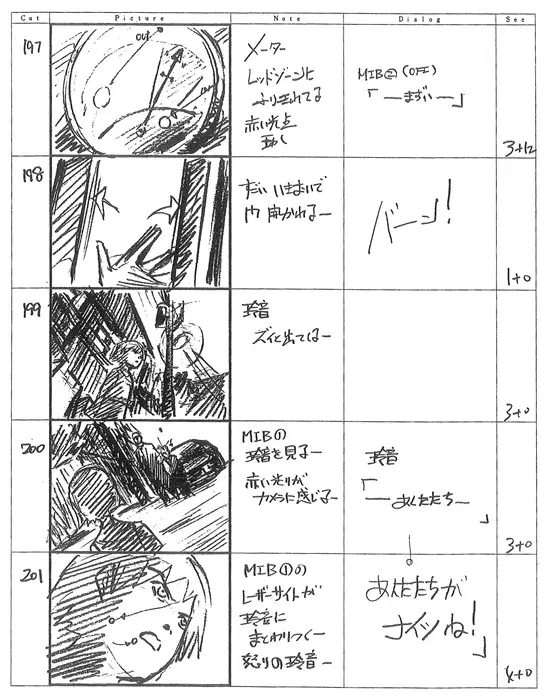 Cut Picture Note Dialog Sec
197
OUT
メーター
レッドゾーンに
ふりきれてる
赤い光点
動く
MIB② (OFF)
「—まずい—」
3+12
198
いきおいで
開かれる—
バーン!
1+0
199
玲音
ズイと出てくる—
3+0
200
MIBの
玲音を見る—
赤い光りが
カメラに感じる—
玲音
「—あんたたち—
」
3+0
201
MIB①の
レーザーサイトが
玲音に
まとわりつく—
怒りの玲音—
あんたたちが
ナイツね!」
4+0